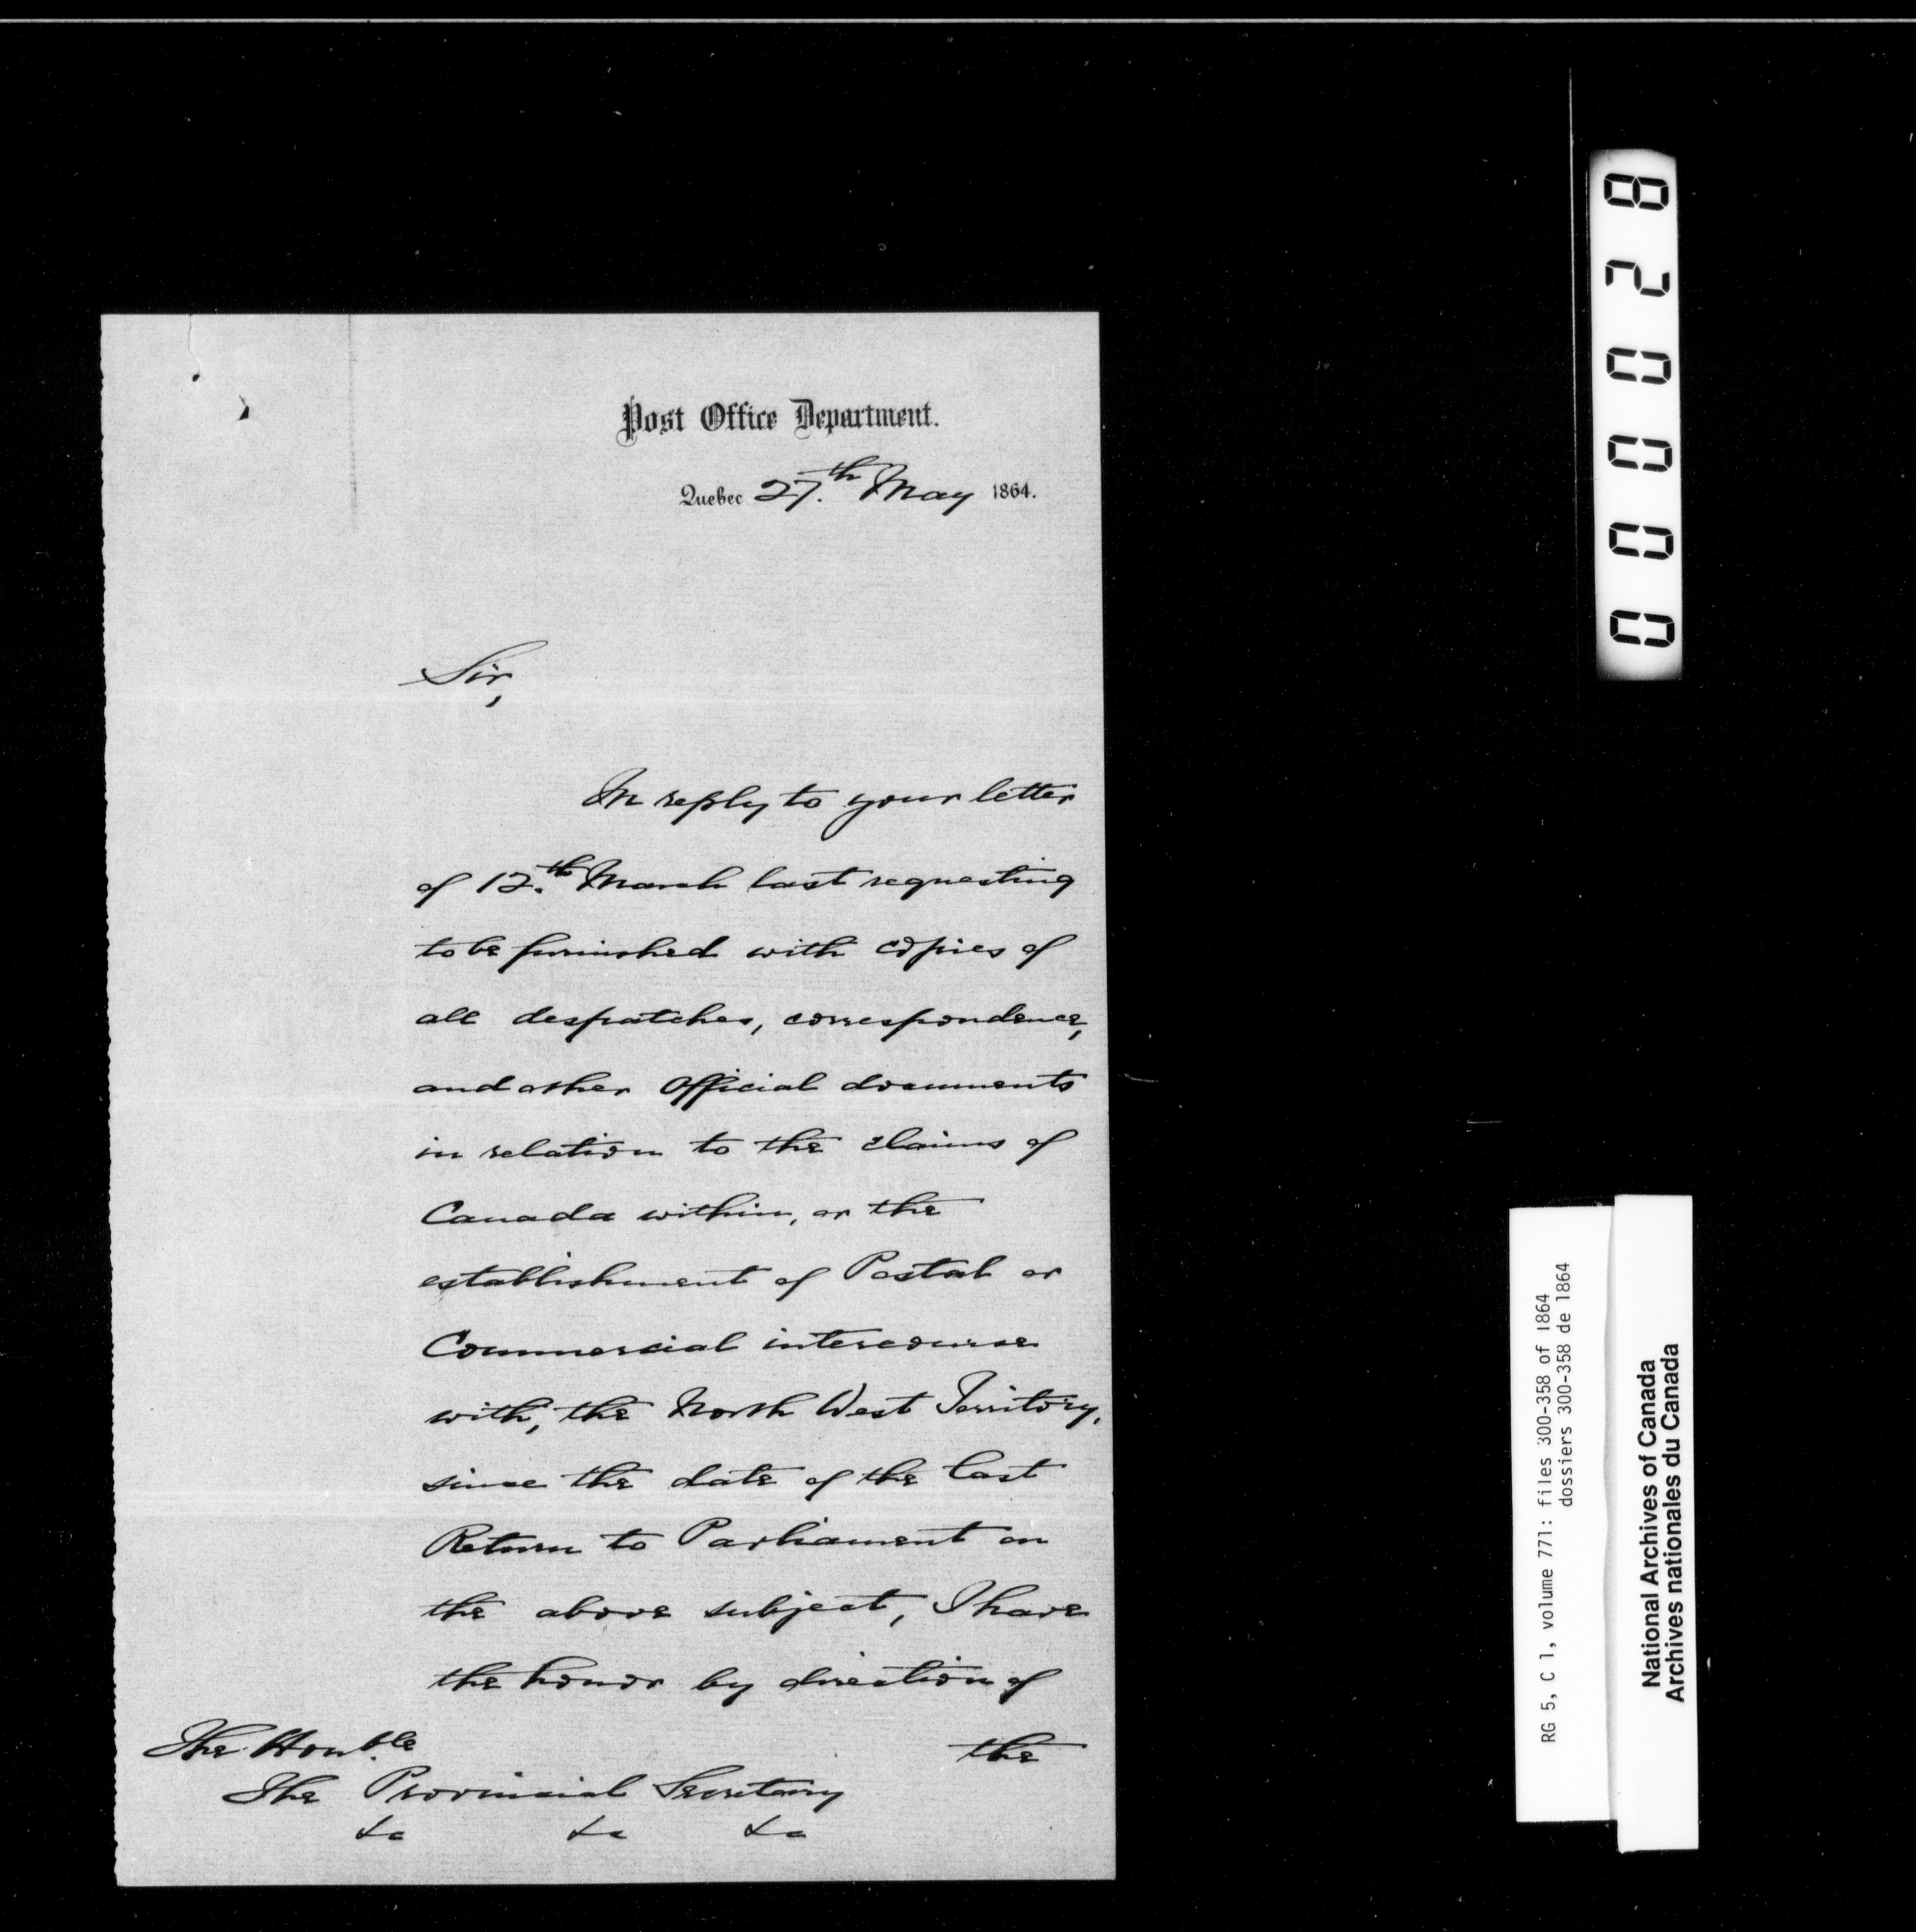 Post Office Department.
Quebec 27.th May 1864.
Sir,
In reply to your letter
of 12.th March last requesting
to be furnished with copies of
all despatches, correspondence,
and other Official documents
in relation to the claims of
Canada within, or the
establishment of Postal or
Commercial intercourse
with, the North West Territory,
since the date of the last
Return to Parliament on
the above subject, I have
the honor by direction of
the
The Honble
The Provincial Secretary
&c &c &c
000028
RG 5, C 1, volume 771: files 300-358 of 1864
dossiers 300-358 de 1864
National Archives of Canada
Archives nationales du Canada